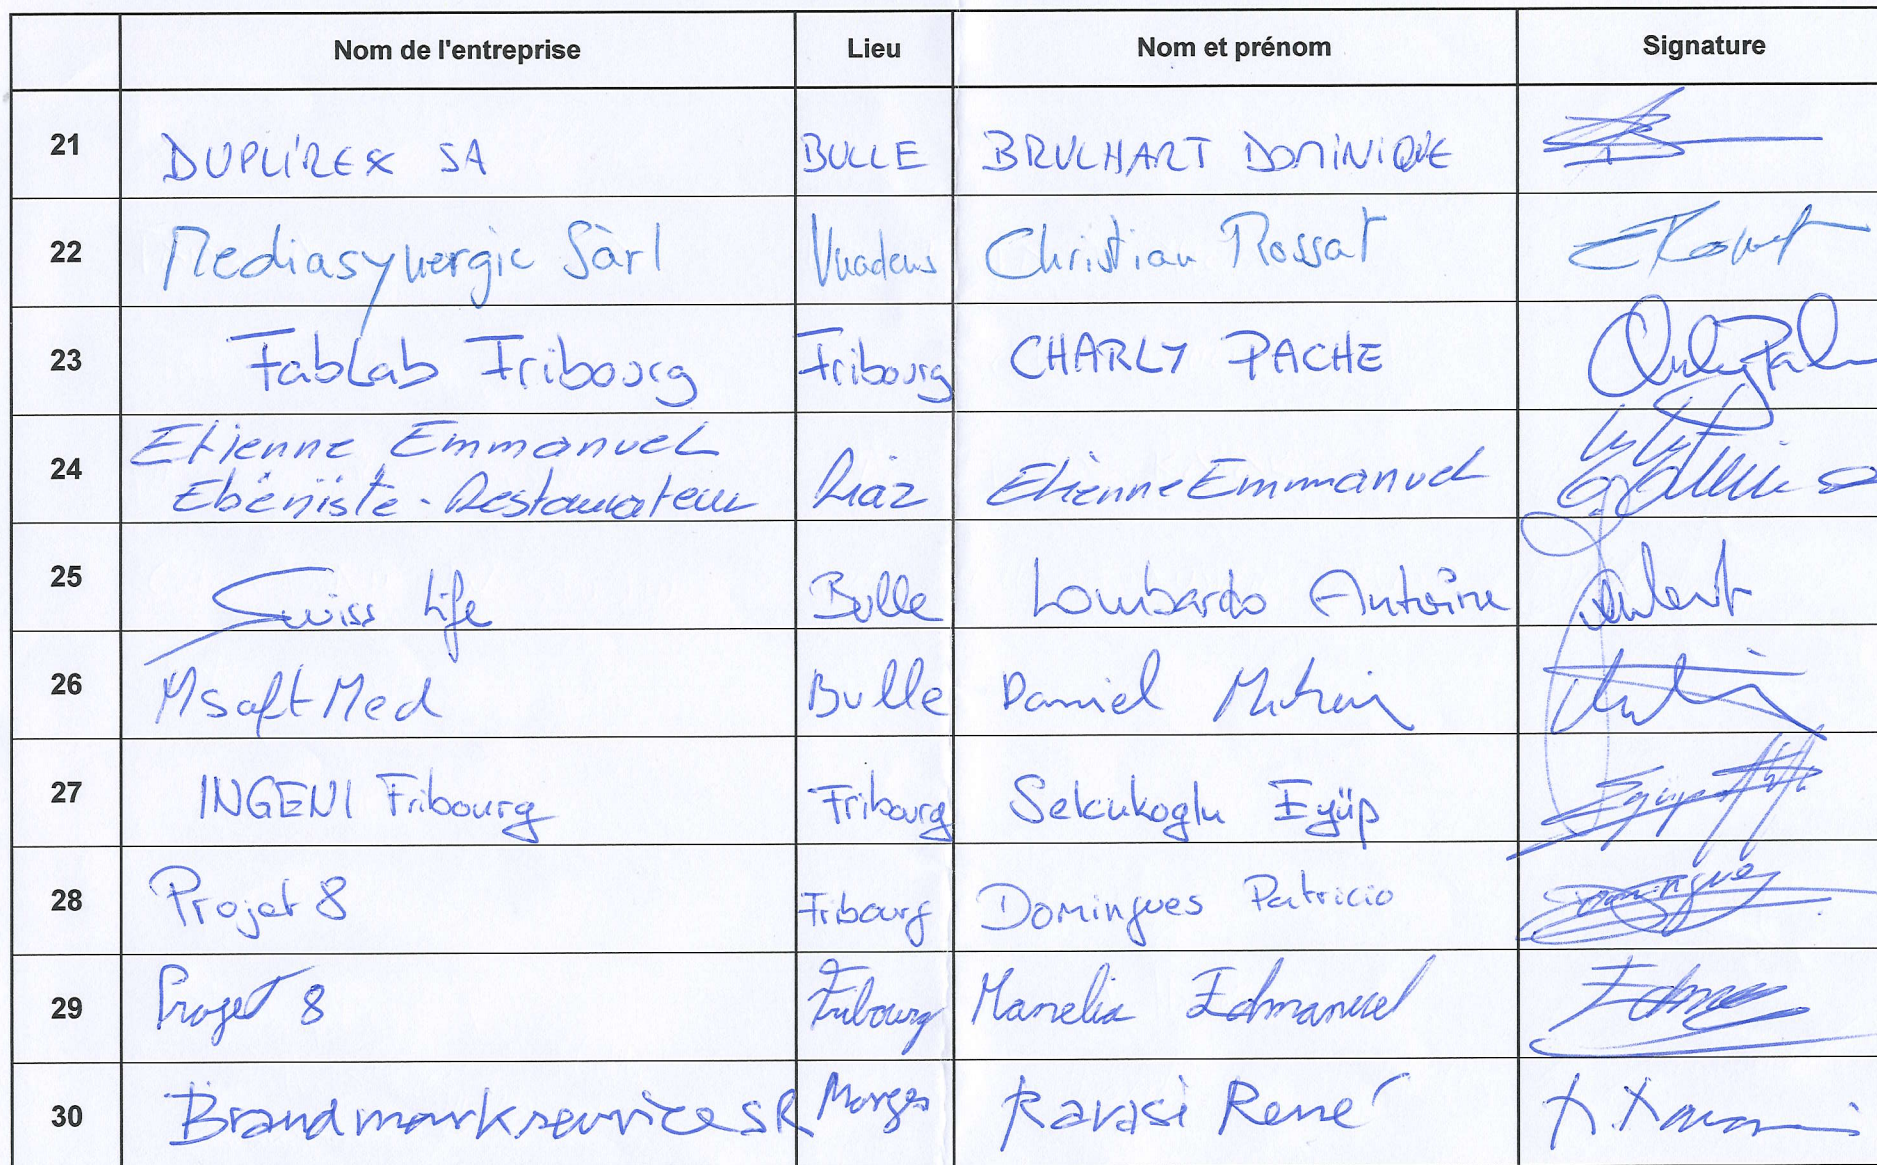 Nom de l'entreprise Lieu Nom et prénom Signature
21 DUPLIREX SA BULLE BRULHART DOMINIQUE
22 Mediasynergie Sàrl Vuadens Christian Rossat
23 FabLab Fribourg Fribourg CHARLY PACHE
24 Etienne Emmanuel
Ebéniste - Restaurateur Riaz Etienne Emmanuel
25 Swiss Life Bulle Lombardo Antoine
26 MsoftMed Bulle Daniel
27 INGENI Fribourg Fribourg Selcukoglu Eyüp
28 Projet 8 Fribourg Domingues Patricio
29 Projet 8 Fribourg Edmanuel
30 Brandmarkservice SR Morges Ravasi René